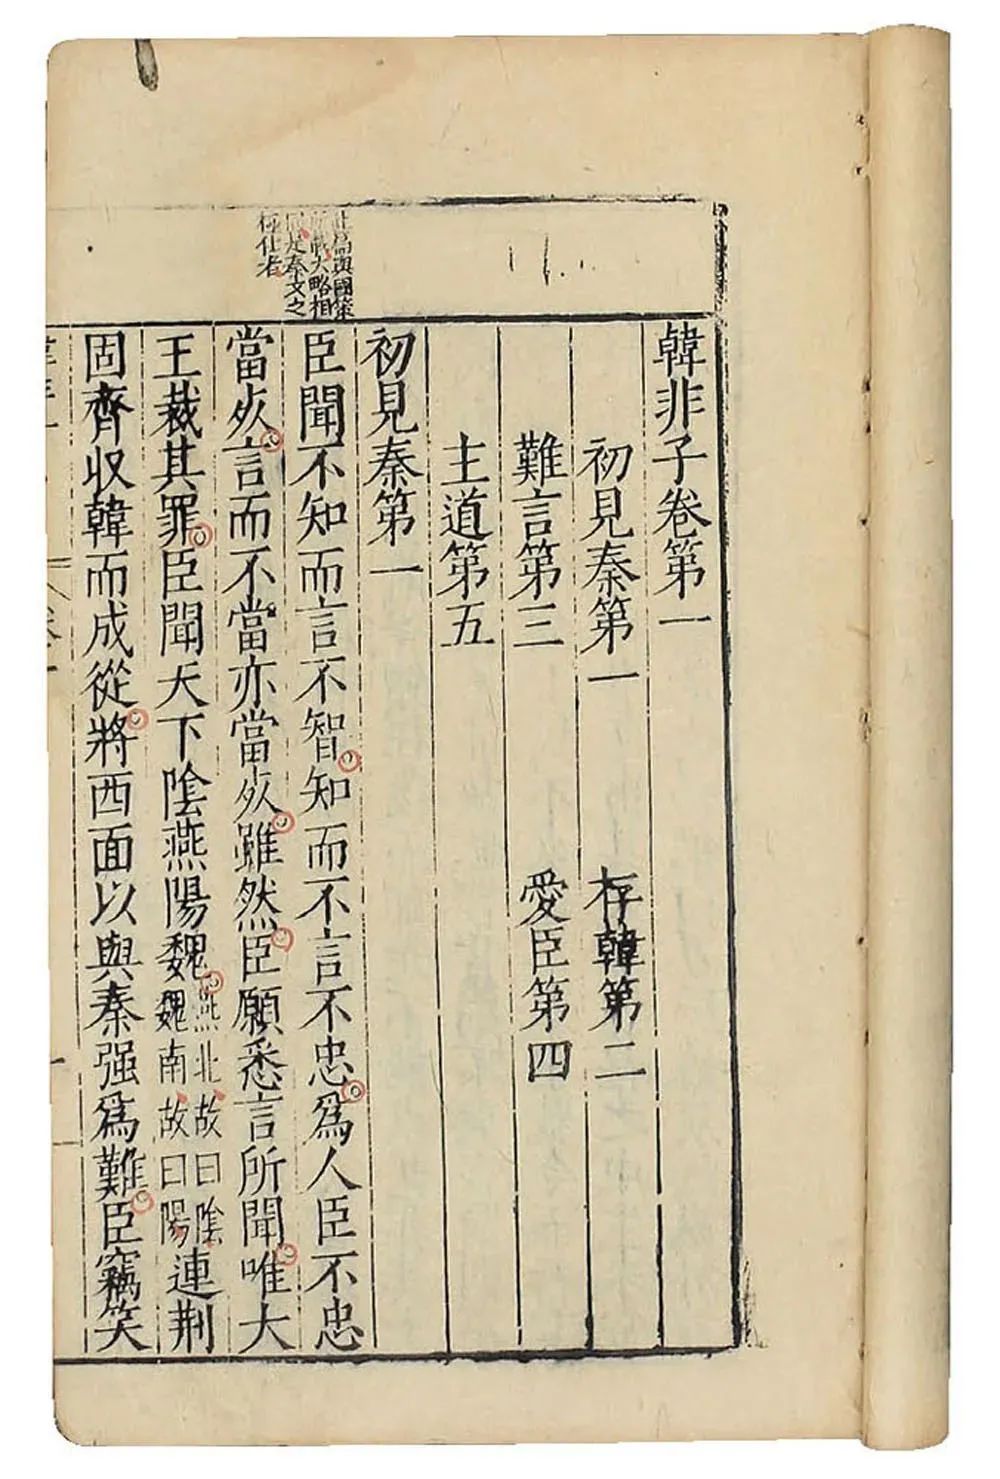 韓非子卷第一
初見秦第一　存韓第二
難言第三　愛臣第四
主道第五
初見秦第一
與國策
大略相
秦文之
者
臣聞不知而言不智知而不言不忠爲人臣不忠
當死言而不當亦當死雖然臣願悉言所聞唯大
王裁其罪臣聞天下陰燕陽魏
燕北故曰陰
魏南故曰陽
連荆
固齊収韓而成從將西面以與秦强爲難臣竊笑